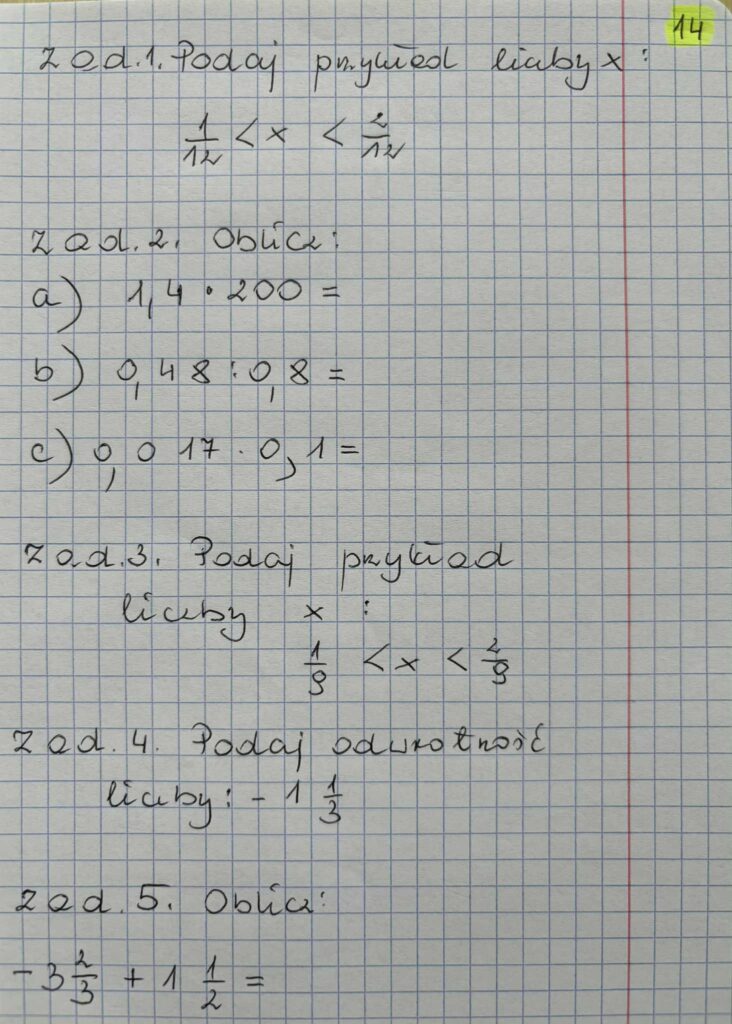 14
Zad.1. Podaj przykład liczby x:
1/12 < x < 2/12
Zad.2. Oblicz:
a) 1,4 · 200 =
b) 0,48 : 0,8 =
c) 0,017 · 0,1 =
Zad.3. Podaj przykład
liczby x :
1/9 < x < 2/9
Zad.4. Podaj odwrotność
liczby: - 1 1/3
Zad.5. Oblicz:
-3 2/3 + 1 1/2 =